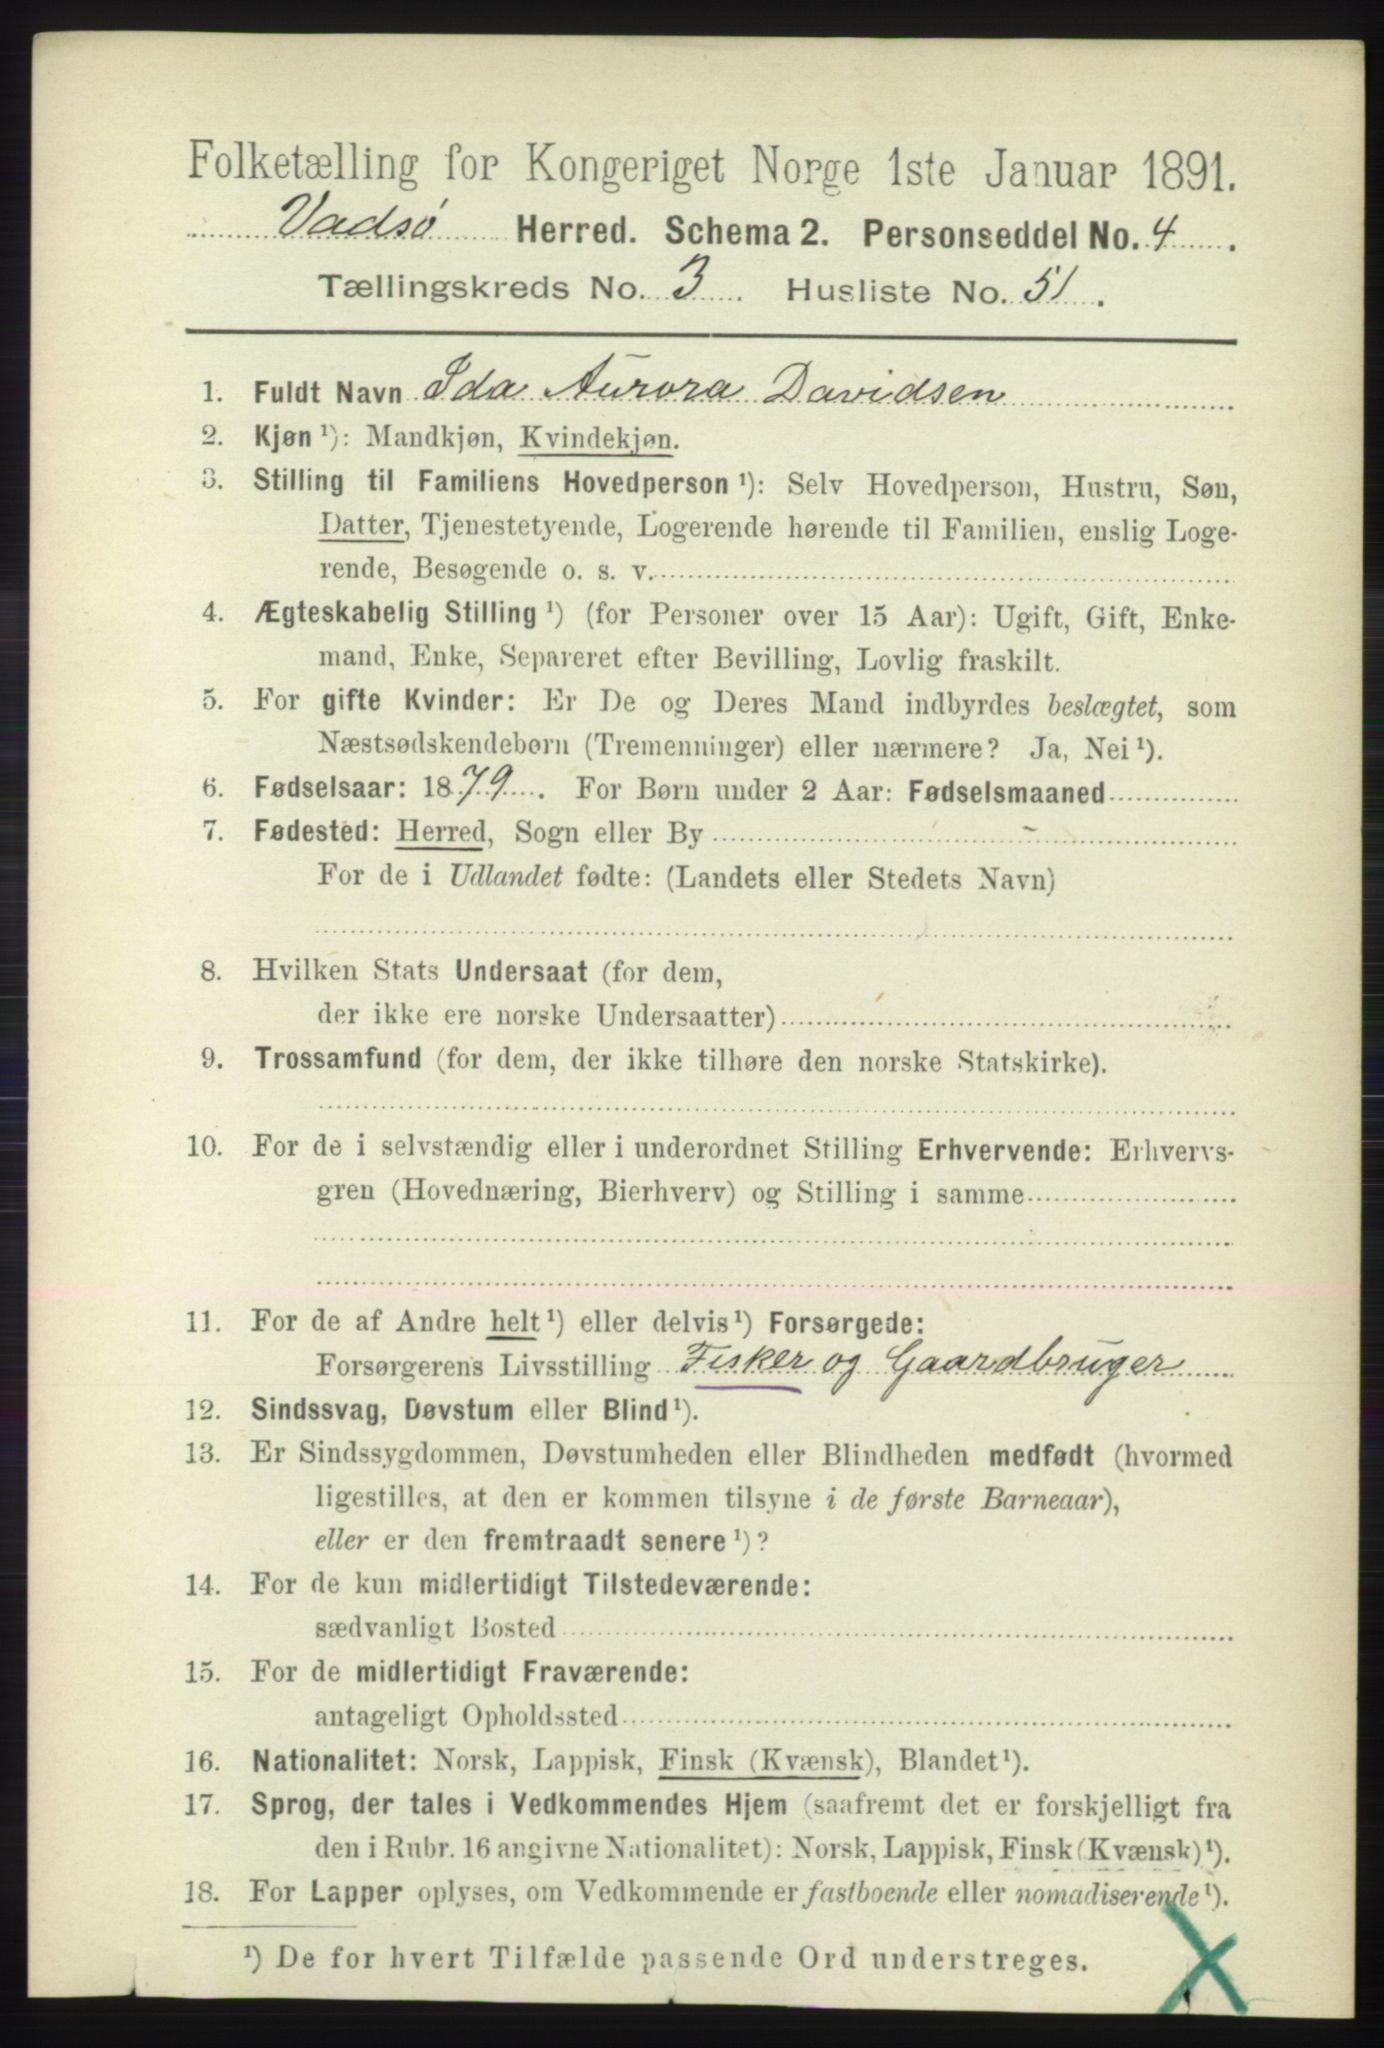 Folketælling for Kongeriget Norge 1ste Januar 1891.
Vadsø Herred. Schema 2. Personseddel No. 4.
Tællingskreds No. 3. Husliste No. 51.
1. Fuldt Navn Ida Aurora Davidsen
2. Kjøn ¹): Mandkjøn, Kvindekjøn.
3. Stilling til Familiens Hovedperson ¹): Selv Hovedperson, Hustru, Søn,
Datter, Tjenestetyende, Logerende hørende til Familien, enslig Loge-
rende, Besøgende o. s. v.
4. Ægteskabelig Stilling ¹) (for Personer over 15 Aar): Ugift, Gift, Enke-
mand, Enke, Separeret efter Bevilling, Lovlig fraskilt.
5. For gifte Kvinder: Er De og Deres Mand indbyrdes beslægtet, som
Næstsødskendebørn (Tremenninger) eller nærmere? Ja, Nei ¹).
6. Fødselsaar: 1879. For Børn under 2 Aar: Fødselsmaaned
7. Fødested: Herred, Sogn eller By
For de i Udlandet fødte: (Landets eller Stedets Navn)
8. Hvilken Stats Undersaat (for dem,
der ikke ere norske Undersaatter)
9. Trossamfund (for dem, der ikke tilhøre den norske Statskirke).
10. For de i selvstændig eller i underordnet Stilling Erhvervende: Erhvervs-
gren (Hovednæring, Bierhverv) og Stilling i samme
11. For de af Andre helt ¹) eller delvis ¹) Forsørgede:
Forsørgerens Livsstilling Fisker og Gaardbruger
12. Sindssvag, Døvstum eller Blind ¹).
13. Er Sindssygdommen, Døvstumheden eller Blindheden medfødt (hvormed
ligestilles, at den er kommen tilsyne i de første Barneaar),
eller er den fremtraadt senere ¹)?
14. For de kun midlertidigt Tilstedeværende:
sædvanligt Bosted
15. For de midlertidigt Fraværende:
antageligt Opholdssted
16. Nationalitet: Norsk, Lappisk, Finsk (Kvænsk), Blandet ¹).
17. Sprog, der tales i Vedkommendes Hjem (saafremt det er forskjelligt fra
den i Rubr. 16 angivne Nationalitet): Norsk, Lappisk, Finsk (Kvænsk) ¹).
18. For Lapper oplyses, om Vedkommende er fastboende eller nomadiserende ¹).
¹) De for hvert Tilfælde passende Ord understreges.